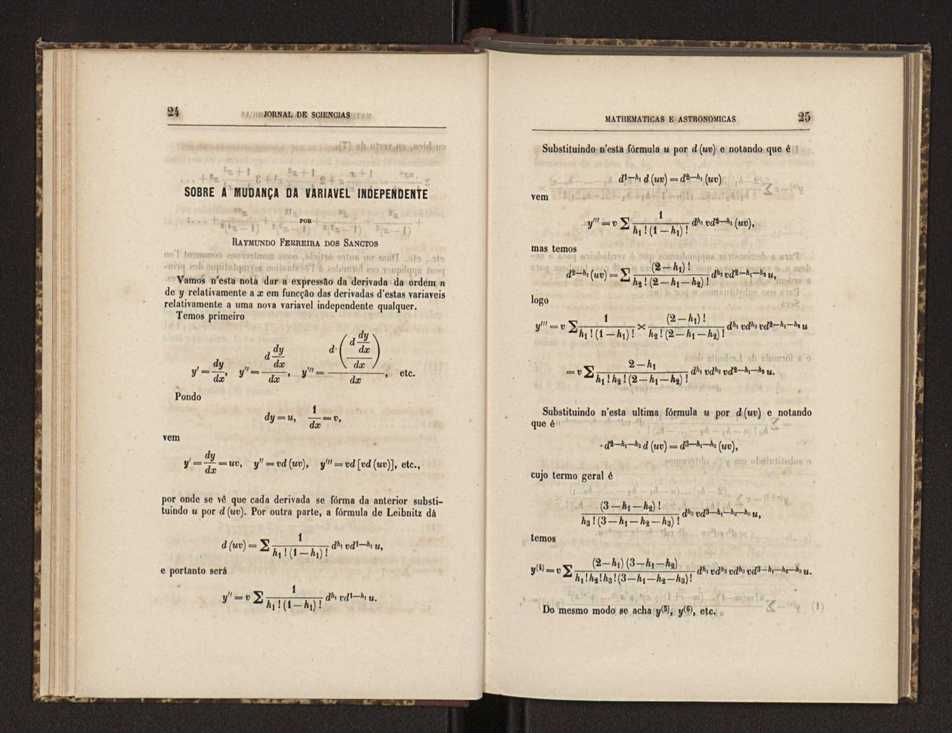 24 JORNAL DE SCIENCIAS
SOBRE A MUDANÇA DA VARIAVEL INDEPENDENTE
POR
RAYMUNDO FERREIRA DOS SANCTOS
Vamos n'esta nota dar a expressão da derivada da ordem n
de y relativamente a x em funcção das derivadas d'estas variaveis
relativamente a uma nova variavel independente qualquer.
Temos primeiro
y' = dy/dx, y'' = d (dy/dx) / dx, y''' = d · (d (dy/dx) / dx) / dx, etc.
Pondo
dy = u, 1/dx = v,
vem
y' = dy/dx = uv, y'' = vd (uv), y''' = vd [vd (uv)], etc.,
por onde se vê que cada derivada se fórma da anterior substi-
tuindo u por d (uv). Por outra parte, a fórmula de Leibnitz dá
d (uv) = Σ 1 / (h₁ ! (1 — h₁) !) d^{h₁} vd^{1—h₁} u,
e portanto será
y'' = v Σ 1 / (h₁ ! (1 — h₁) !) d^{h₁} vd^{1—h₁} u.
MATHEMATICAS E ASTRONOMICAS 25
Substituindo n'esta fórmula u por d (uv) e notando que é
d^{1—h₁} d (uv) = d^{2—h₁} (uv)
vem
y''' = v Σ 1 / (h₁ ! (1 — h₁) !) d^{h₁} vd^{2—h₁} (uv),
mas temos
d^{2—h₁} (uv) = Σ (2 — h₁) ! / (h₂ ! (2 — h₁ — h₂) !) d^{h₂} vd^{2—h₁—h₂} u,
logo
y''' = v Σ 1 / (h₁ ! (1 — h₁) !) × (2 — h₁) ! / (h₂ ! (2 — h₁ — h₂) !) d^{h₁} vd^{h₂} vd^{2—h₁—h₂} u
= v Σ (2 — h₁) / (h₁ ! h₂ ! (2 — h₁ — h₂) !) d^{h₁} vd^{h₂} vd^{2—h₁—h₂} u.
Substituindo n'esta ultima fórmula u por d (uv) e notando
que é
d^{2—h₁—h₂} d (uv) = d^{3—h₁—h₂} (uv),
cujo termo geral é
(3 — h₁ — h₂) ! / (h₃ ! (3 — h₁ — h₂ — h₃) !) d^{h₃} vd^{3—h₁—h₂—h₃} u,
temos
y⁽⁴⁾ = v Σ (2 — h₁) (3 — h₁ — h₂) / (h₁ ! h₂ ! h₃ ! (3 — h₁ — h₂ — h₃) !) d^{h₁} vd^{h₂} vd^{h₃} vd^{3—h₁—h₂—h₃} u.
Do mesmo modo se acha y⁽⁵⁾, y⁽⁶⁾, etc.